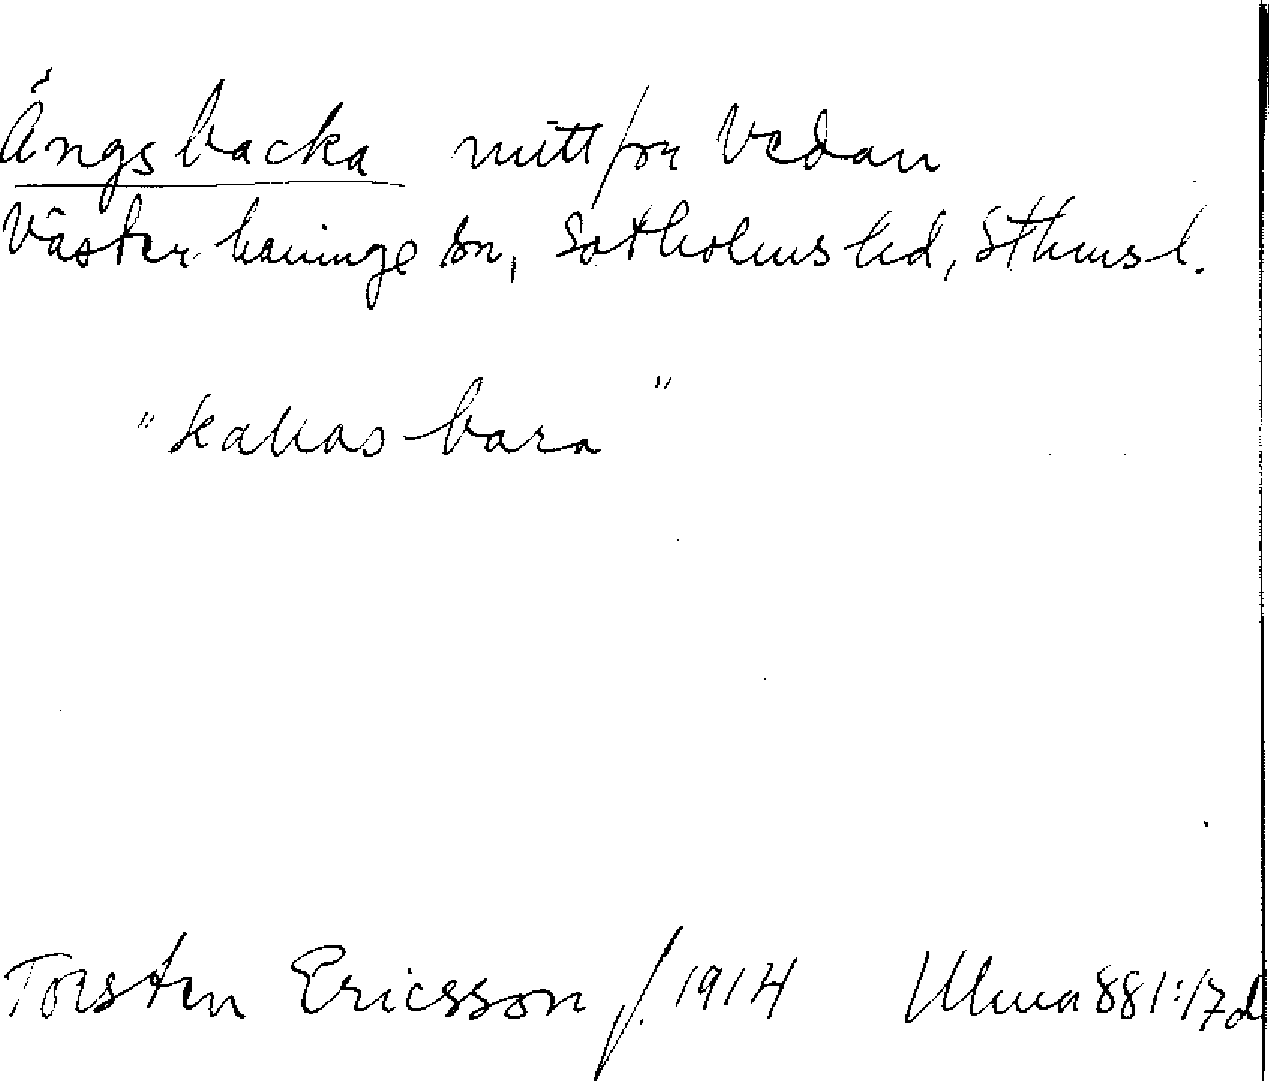 Ängsbacka mittför Vedan
Västerhaninge sn, Sotholms hd, Sthms l.
"kallas bara"
Torsten Ericsson f. 1914 Ulma 881:17 d